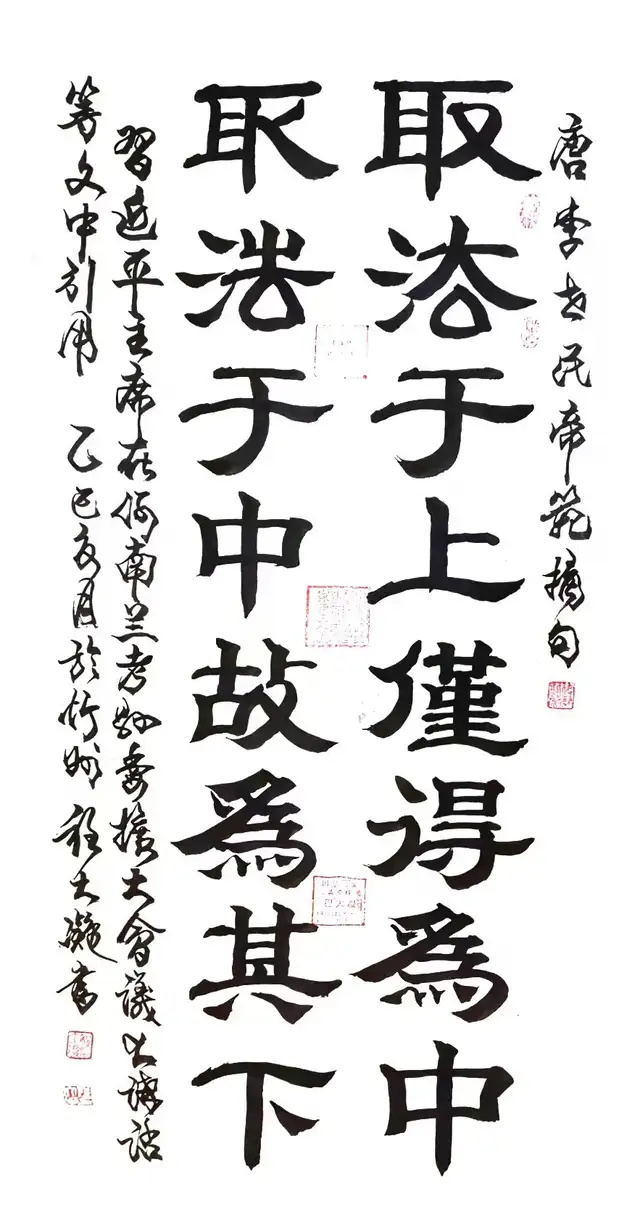 唐李世民帝範摘句
取法于上僅得為中
取法于中故為其下
習近平主席在河南兰考縣委擴大會議上講話
等文中引用 乙巳月於程大書